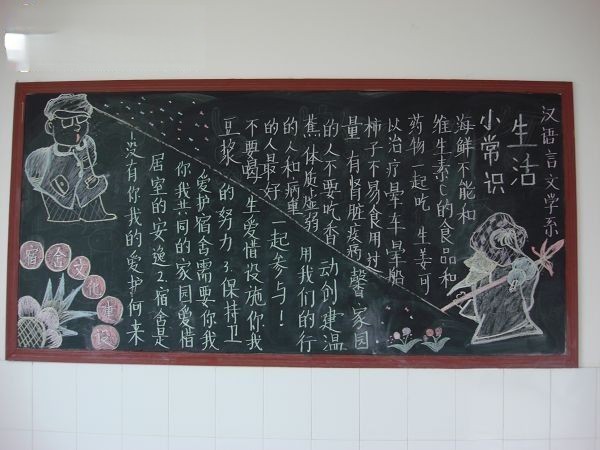 汉语言文学系
生活
小常识
海鲜不能和
维生素C的食品和
药物一起吃 生姜可
以治疗晕车晕船
柿子不易食用过
量 有肾脏疾病
的人不要吃香
蕉 体质虚弱
的人和病重
的人最好
不要喝
豆浆
宿舍文化建设
没有你我的爱护何来
居室的安逸 2.宿舍是
你我共同的家园爱惜
爱护宿舍需要你我
的努力 3.保持卫
生爱惜设施你我
一起参与!
用我们的行
动创建温
馨家园